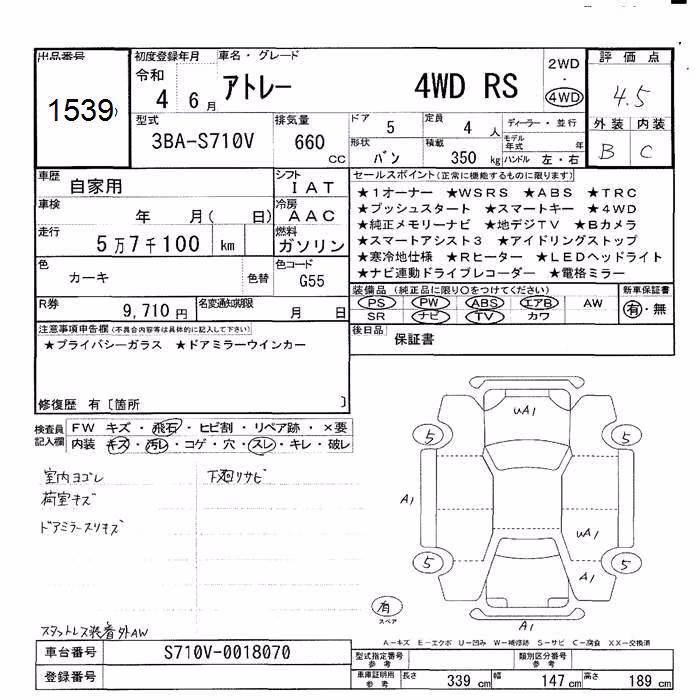 出品番号
1539
初度登録年月
令和
4 6月
車名・グレード
アトレー 4WD RS
2WD
・
4WD
評価点
4.5
外装 内装
B C
型式
3BA-S710V
排気量
660
cc
ドア
5
定員
4 人
ディーラー・並行
形状
バン
積載
350 kg
モデル年式 年
ハンドル 左・右
車歴
自家用
シフト
IAT
車検
年 月( 日)
冷房
AAC
走行
5万7千100 km
燃料
ガソリン
色
カーキ
色替
色コード
G55
R券
9,710円
名変通知期限
月 日
セールスポイント(正常に機能するものに限ります)
★1オーナー ★WSRS ★ABS ★TRC
★プッシュスタート ★スマートキー ★4WD
★純正メモリーナビ ★地デジTV ★Bカメラ
★スマートアシスト3 ★アイドリングストップ
★寒冷地仕様 ★Rヒーター ★LEDヘッドライト
★ナビ連動ドライブレコーダー ★電格ミラー
装備品(純正品に限り○をつけてください)
新車保証書
PS PW ABS エアB AW
SR ナビ TV カワ
有・無
注意事項申告欄(不具合内容等は具体的に記入して下さい)
★プライバシーガラス ★ドアミラーウインカー
後日品
保証書
修復歴 有〔箇所 〕
検査員記入欄
FW キズ・飛石・ヒビ割・リペア跡・×要
内装 キズ・汚レ・コゲ・穴・スレ・キレ・破レ
室内ヨゴレ
下廻リサビ
荷室キズ
ドアミラースリキズ
スタットレス装着外AW
uA1
5 5
A1
uA1
5 5
A1
有
スペア
A1
A-キズ E-エクボ U-凹み W-補修跡 S-サビ C-腐食 XX-交換済
車台番号
S710V-0018070
登録番号
型式指定番号
参考
類別区分番号
参考
車庫証明用
参考
長さ 339 cm
幅 147 cm
高さ 189 cm